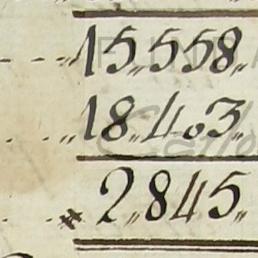 15,,558,,
18,,403,,
2,,845,,